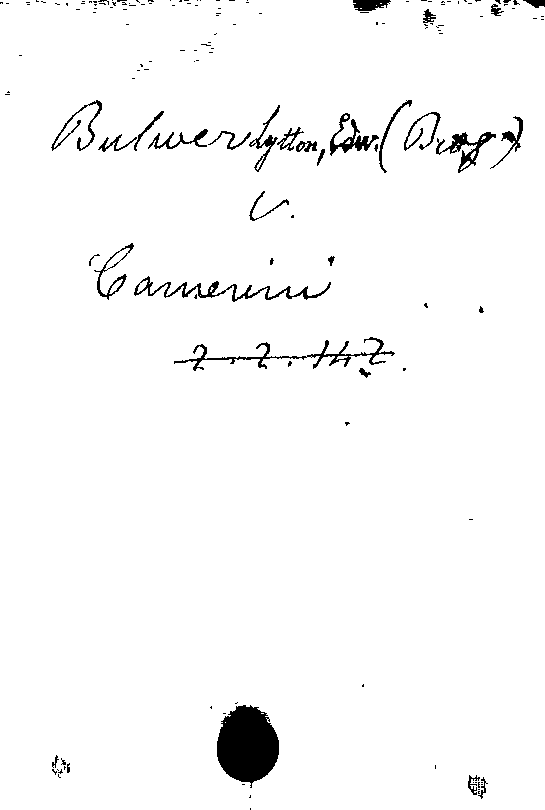 Bulwer Lytton, Edw. (
V.
Camerini
2.2.147.